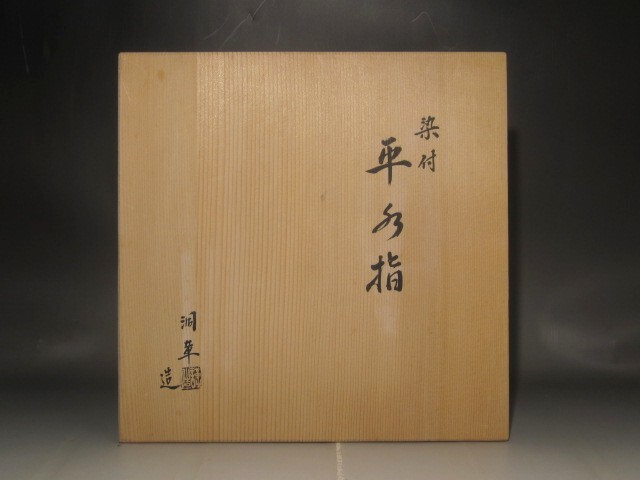 染付
平水指
洞草
造